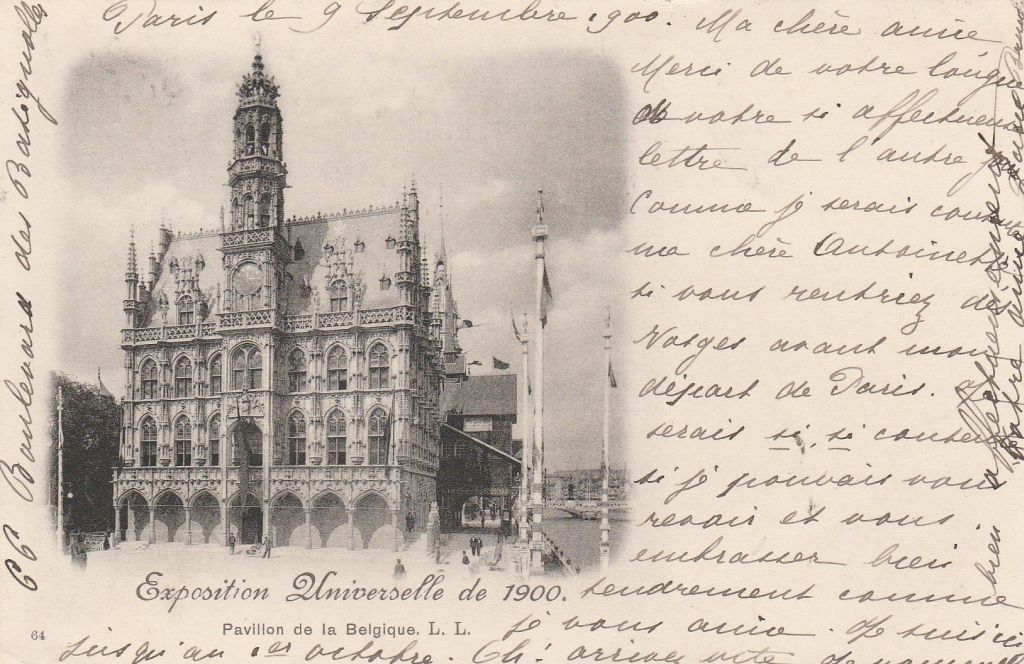 Paris le 9 Septembre 1900. Ma chère amie
Merci de votre longue
de votre si affectueuse
lettre de l'autre jour
Comme je serais contente
ma chère Antoinette
si vous rentriez des
Vosges avant mon
départ de Paris. Je
serais si, si contente
si je pouvais vous
revoir et vous
embrasser bien
tendrement comme
je vous aime. Je suis ici
jusqu'au 1er octobre. Oh! arrivez vite
bien
affectueusement
Votre amie
66 Boulevard des Batignolles
Exposition Universelle de 1900.
Pavillon de la Belgique. L. L.
64